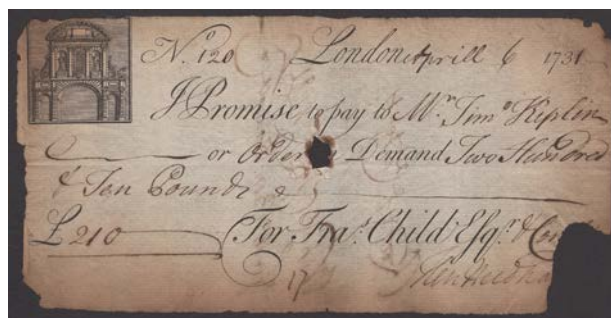 No. 120 London Aprill 6 1731
I Promise to pay to Mr. Timo. Kiplin
or Order Demand Two Hundred
& Ten Pounds
£210 For Fras. Child Esqr. &
17